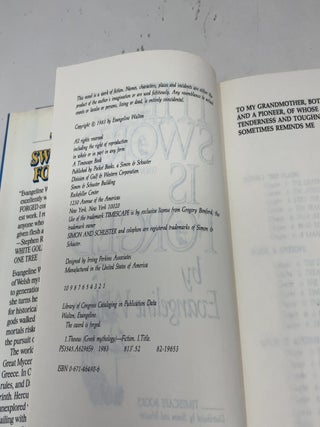 This novel is a work of fiction. Names, characters, places and incidents are either the
product of the author's imagination or are used fictitiously. Any resemblance to actual
events or locales or persons, living or dead, is entirely coincidental.
Copyright © 1983 by Evangeline Walton
All rights reserved
including the right of reproduction
in whole or in part in any form
A Timescape Book
Published by Pocket Books, a Simon & Schuster
Division of Gulf & Western Corporation
Simon & Schuster Building
Rockefeller Center
1230 Avenue of the Americas
New York, New York 10020
Use of the trademark TIMESCAPE is by exclusive license from Gregory Benford, the
trademark owner
SIMON AND SCHUSTER and colophon are registered trademarks of Simon &
Schuster.
Designed by Irving Perkins Associates
Manufactured in the United States of America
10 9 8 7 6 5 4 3 2 1
Library of Congress Cataloging in Publication Data
Walton, Evangeline.
The sword is forged.
1. Theseus (Greek mythology)—Fiction. I. Title.
1983
ISBN 0-671-46490-6
TO MY GRANDMOTHER, BOT
AND A PIONEER, OF WHOSE
TENDERNESS AND TOUGHN
SOMETIMES REMINDS ME
SW
FO
Evangeline W
excellently w
FORGED
est work. I
and anyone
given flesh a
—Stephen R
WHITE GOL
ONE TREE
Evangeline W
of Welsh my
to generatio
she turns he
for historica
gods walked
mortals risk
the pursuit o
The world
Great Mycer
Greece. In C
rules, and D
rinth. Hercu
unexplored
with